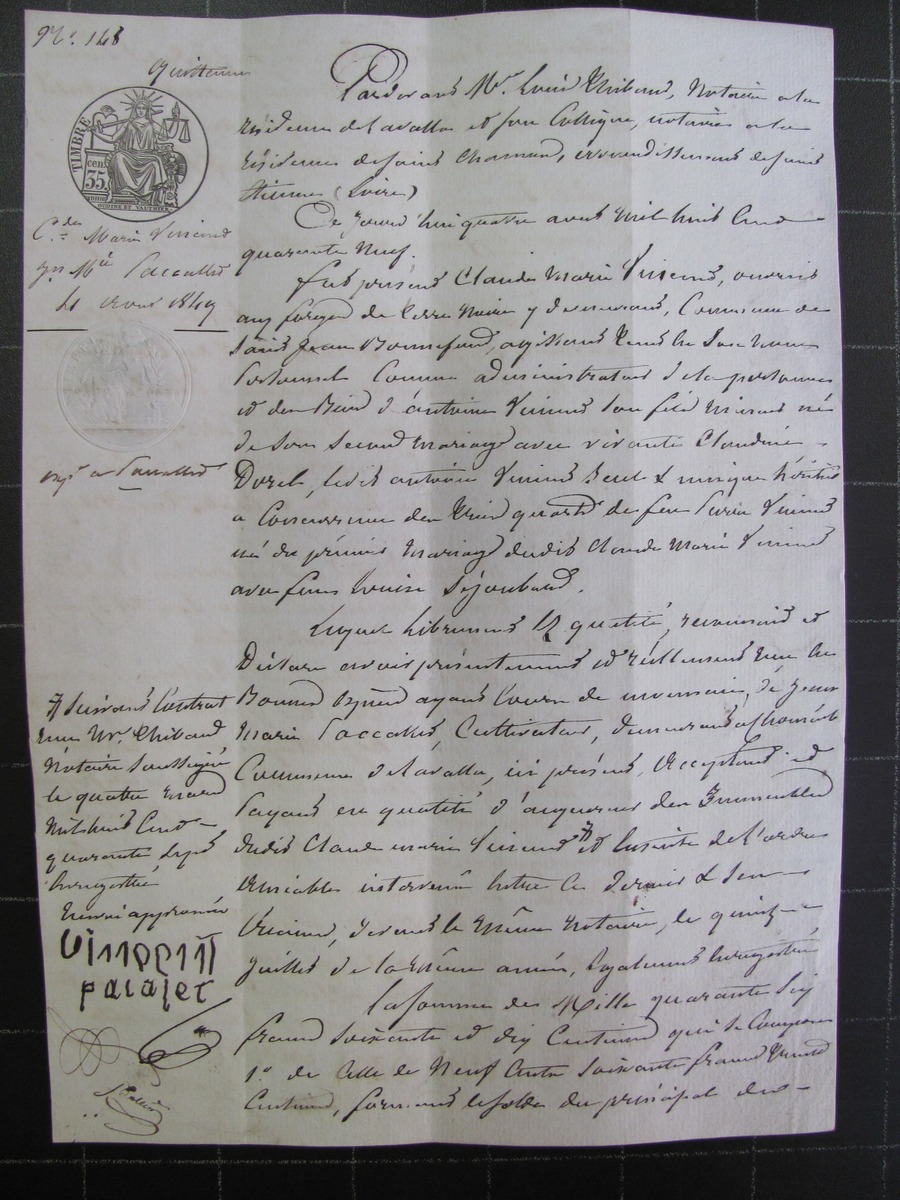 N.° 148
Quittance
TIMBRE
35 cen
OUDINÉ ET VAUTHIER
Cde Marie Vincent
Jn Mie Paccallet
4 avril 1849
exp.
Par devant Mre Louis Thibaud, Notaire à la
résidence de Lavalla et son Collègue, notaire à la
résidence de Saint Chamond, arrondissement de Saint
Etienne (Loire)
Ce Jourd'hui quatre avril Mil huit Cent
quarante Neuf.
Fut présent Claude Marie Vincent, ouvrier
aux forges de Terre Noire y demeurant, Commune de
Saint Jean Bonnefond, agissant tant en Son Nom
Personnel Comme administrateur de la personne
et des Biens d'antoine Vincent Son fils Mineur né
de Son Second Mariage avec vivante Claudine
Dorel, ledit antoine Vincent Seul & unique héritier
a Concurrence des trois quarts de feu Vincent
né du premier Mariage dudit Claude Marie Vincent
avec feue Louise
Lequel librement Et qualité, reconnaît et
Déclare avoir présentement et réellement reçu en
Bonnes Espèces ayant Cours de monnaie, de Jean
Marie Paccallet, Cultivateur, demeurant a
Commune de Lavalla, ici présent, acceptant et
Payant en qualité d'acquéreur des Immeubles
dudit Claude marie Vincent et Ensuite de l'ordre
amiable intervenu Entre Ce dernier & Ses
Créanciers, devant le même Notaire, le quinze
Juillet de la même année, Egalement Enregistré
La Somme de Mille quarante Six
francs Soixante et dix Centimes qui Se Compose
1° de Celle de Neuf Cents Soixante francs trente
Centimes, formant le Solde du principal des
Suivant Contrat
reçu Mre Thibaud
Notaire Soussigné
le quatre mars
Mil huit Cent
quarante Sept
Enregistré
Renvoi approuvé
Vincent
pacalet